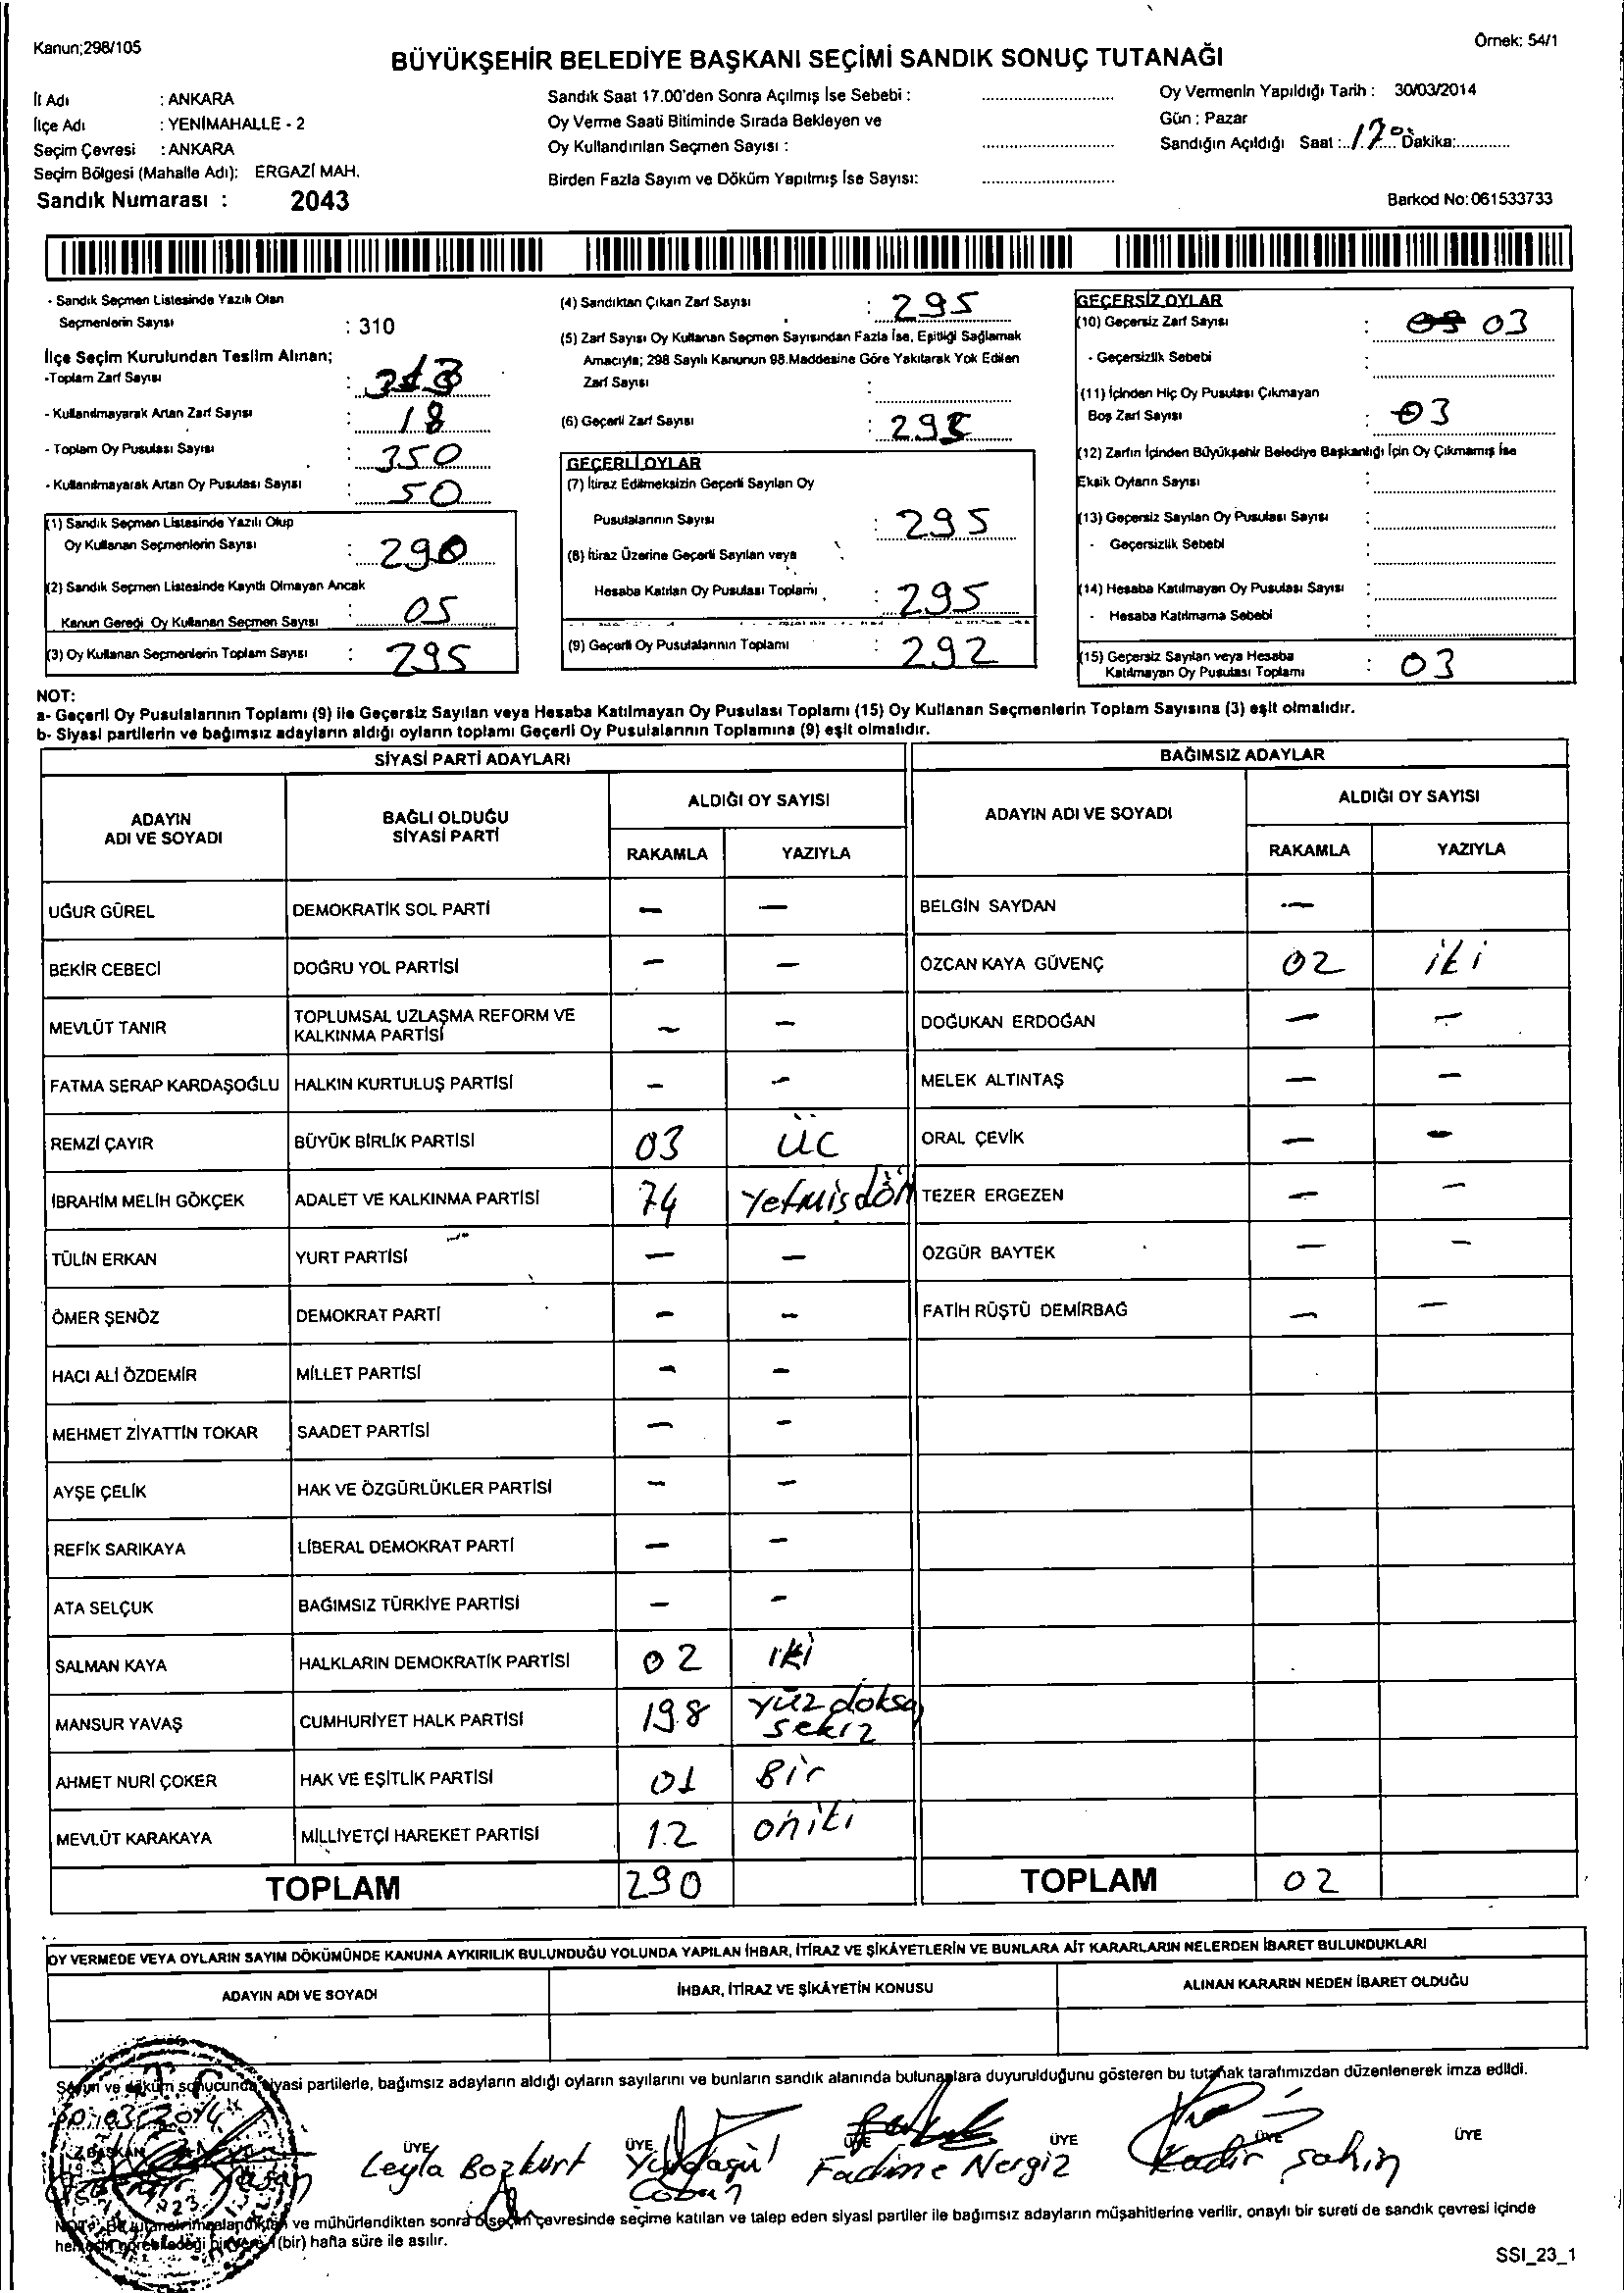 Kanun;298/105
Örnek: 54/1
BÜYÜKŞEHİR BELEDİYE BAŞKANI SEÇİMİ SANDIK SONUÇ TUTANAĞI
İl Adı : ANKARA
İlçe Adı : YENİMAHALLE - 2
Seçim Çevresi : ANKARA
Seçim Bölgesi (Mahalle Adı): ERGAZİ MAH.
Sandık Numarası : 2043
Sandık Saat 17.00'den Sonra Açılmış İse Sebebi :
Oy Verme Saati Bitiminde Sırada Bekleyen ve
Oy Kullandırılan Seçmen Sayısı :
Birden Fazla Sayım ve Döküm Yapılmış İse Sayısı:
Oy Vermenin Yapıldığı Tarih : 30/03/2014
Gün : Pazar
Sandığın Açıldığı Saat : 17 Dakika:
Barkod No:061533733
- Sandık Seçmen Listesinde Yazılı Olan
Seçmenlerin Sayısı : 310
İlçe Seçim Kurulundan Teslim Alınan;
-Toplam Zarf Sayısı : 313
- Kullanılmayarak Artan Zarf Sayısı : 18
- Toplam Oy Pusulası Sayısı : 350
- Kullanılmayarak Artan Oy Pusulası Sayısı : 50
(1) Sandık Seçmen Listesinde Yazılı Olup
Oy Kullanan Seçmenlerin Sayısı : 290
(2) Sandık Seçmen Listesinde Kayıtlı Olmayan Ancak
Kanun Gereği Oy Kullanan Seçmen Sayısı : 05
(3) Oy Kullanan Seçmenlerin Toplam Sayısı : 295
(4) Sandıktan Çıkan Zarf Sayısı : 295
(5) Zarf Sayısı Oy Kullanan Seçmen Sayısından Fazla İse, Eşitliği Sağlamak
Amacıyla; 298 Sayılı Kanunun 98.Maddesine Göre Yakılarak Yok Edilen
Zarf Sayısı :
(6) Geçerli Zarf Sayısı : 295
GEÇERLİ OYLAR
(7) İtiraz Edilmeksizin Geçerli Sayılan Oy
Pusulalarının Sayısı : 295
(8) İtiraz Üzerine Geçerli Sayılan veya
Hesaba Katılan Oy Pusulası Toplamı : 295
(9) Geçerli Oy Pusulalarının Toplamı : 292
GEÇERSİZ OYLAR
(10) Geçersiz Zarf Sayısı : 03
- Geçersizlik Sebebi :
(11) İçinden Hiç Oy Pusulası Çıkmayan
Boş Zarf Sayısı : 03
(12) Zarfın İçinden Büyükşehir Belediye Başkanlığı İçin Oy Çıkmamış İse
Eksik Oyların Sayısı :
(13) Geçersiz Sayılan Oy Pusulası Sayısı :
- Geçersizlik Sebebi :
(14) Hesaba Katılmayan Oy Pusulası Sayısı :
- Hesaba Katılmama Sebebi :
(15) Geçersiz Sayılan veya Hesaba
Katılmayan Oy Pusulası Toplamı : 03
NOT:
a- Geçerli Oy Pusulalarının Toplamı (9) ile Geçersiz Sayılan veya Hesaba Katılmayan Oy Pusulası Toplamı (15) Oy Kullanan Seçmenlerin Toplam Sayısına (3) eşit olmalıdır.
b- Siyasi partilerin ve bağımsız adayların aldığı oyların toplamı Geçerli Oy Pusulalarının Toplamına (9) eşit olmalıdır.
SİYASİ PARTİ ADAYLARI
ADAYIN ADI VE SOYADI
BAĞLI OLDUĞU SİYASİ PARTİ
ALDIĞI OY SAYISI
RAKAMLA YAZIYLA
UĞUR GÜREL DEMOKRATİK SOL PARTİ — —
BEKİR CEBECİ DOĞRU YOL PARTİSİ — —
MEVLÜT TANIR TOPLUMSAL UZLAŞMA REFORM VE KALKINMA PARTİSİ — —
FATMA SERAP KARDAŞOĞLU HALKIN KURTULUŞ PARTİSİ — —
REMZİ ÇAYIR BÜYÜK BİRLİK PARTİSİ 03 üc
İBRAHİM MELİH GÖKÇEK ADALET VE KALKINMA PARTİSİ 74 Yetmişdört
TÜLİN ERKAN YURT PARTİSİ — —
ÖMER ŞENÖZ DEMOKRAT PARTİ — —
HACI ALİ ÖZDEMİR MİLLET PARTİSİ — —
MEHMET ZİYATTİN TOKAR SAADET PARTİSİ — —
AYŞE ÇELİK HAK VE ÖZGÜRLÜKLER PARTİSİ — —
REFİK SARIKAYA LİBERAL DEMOKRAT PARTİ — —
ATA SELÇUK BAĞIMSIZ TÜRKİYE PARTİSİ — —
SALMAN KAYA HALKLARIN DEMOKRATİK PARTİSİ 02 iki
MANSUR YAVAŞ CUMHURİYET HALK PARTİSİ 198 yüzdoksa sekiz
AHMET NURİ ÇOKER HAK VE EŞİTLİK PARTİSİ 01 Bir
MEVLÜT KARAKAYA MİLLİYETÇİ HAREKET PARTİSİ 12 oniki
TOPLAM 290
BAĞIMSIZ ADAYLAR
ADAYIN ADI VE SOYADI
ALDIĞI OY SAYISI
RAKAMLA YAZIYLA
BELGİN SAYDAN —
ÖZCAN KAYA GÜVENÇ 02 iki
DOĞUKAN ERDOĞAN — —
MELEK ALTINTAŞ — —
ORAL ÇEVİK — —
TEZER ERGEZEN — —
ÖZGÜR BAYTEK — —
FATİH RÜŞTÜ DEMİRBAĞ — —
TOPLAM 02
OY VERMEDE VEYA OYLARIN SAYIM DÖKÜMÜNDE KANUNA AYKIRILIK BULUNDUĞU YOLUNDA YAPILAN İHBAR, İTİRAZ VE ŞİKÂYETLERİN VE BUNLARA AİT KARARLARIN NELERDEN İBARET BULUNDUKLARI
ADAYIN ADI VE SOYADI
İHBAR, İTİRAZ VE ŞİKÂYETİN KONUSU
ALINAN KARARIN NEDEN İBARET OLDUĞU
Sayım ve döküm sonucunda, siyasi partilerle, bağımsız adayların aldığı oyların sayılarını ve bunların sandık alanında bulunanlara duyurulduğunu gösteren bu tutanak tarafımızdan düzenlenerek imza edildi.
BAŞKAN ÜYE ÜYE ÜYE ÜYE ÜYE ÜYE
Leyla Bozkurt
Yurdagül Çoban
Fadime Nergiz
Kadir Şahin
ve mühürlendikten sonra o seçim çevresinde seçime katılan ve talep eden siyasi partiler ile bağımsız adayların müşahitlerine verilir, onaylı bir sureti de sandık çevresi içinde
1(bir) hafta süre ile asılır.
SSI_23_1